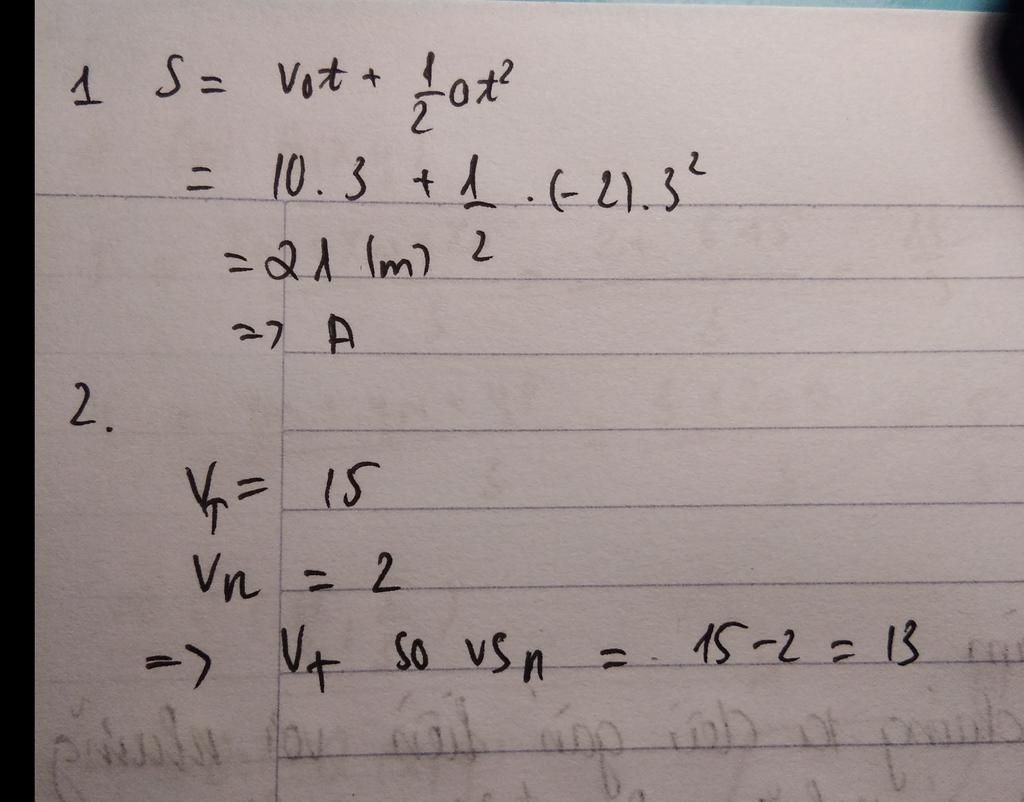 1 S = v₀t + 1/2 at²
= 10.3 + 1/2 .(-2).3²
= 21 (m)
=> A
2.
V_T = 15
Vn = 2
=> V_t so vs n = 15-2 = 13